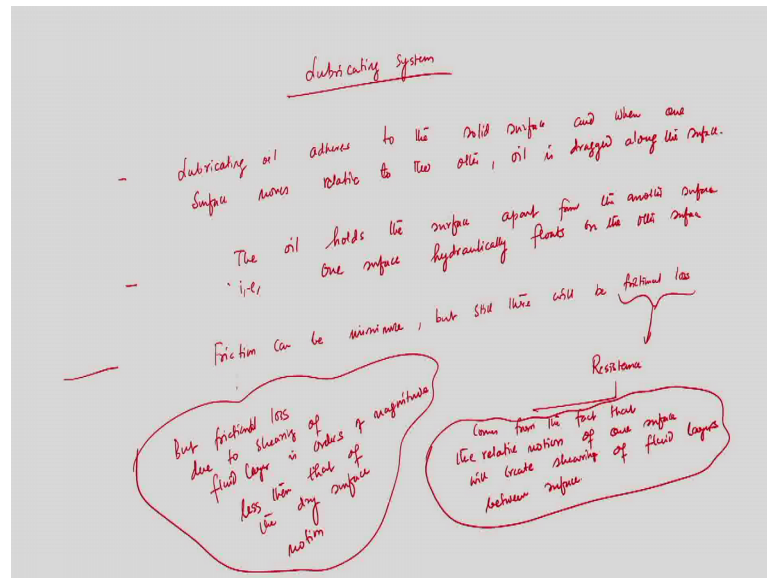 Lubricating System
- Lubricating oil adheres to the solid surface and when one
Surface moves relative to the other, oil is dragged along the surface.
The oil holds the surface apart from the another surface
- i,-e, one surface hydraulically floats on the other surface
Friction can be minimize, but still there will be frictional loss
Resistance
Comes from the fact that
the relative motion of one surface
will create shearing of fluid layers
between surface.
But frictional loss
due to shearing of
fluid layer is orders of magnitude
less than that of
the dry surface
motion